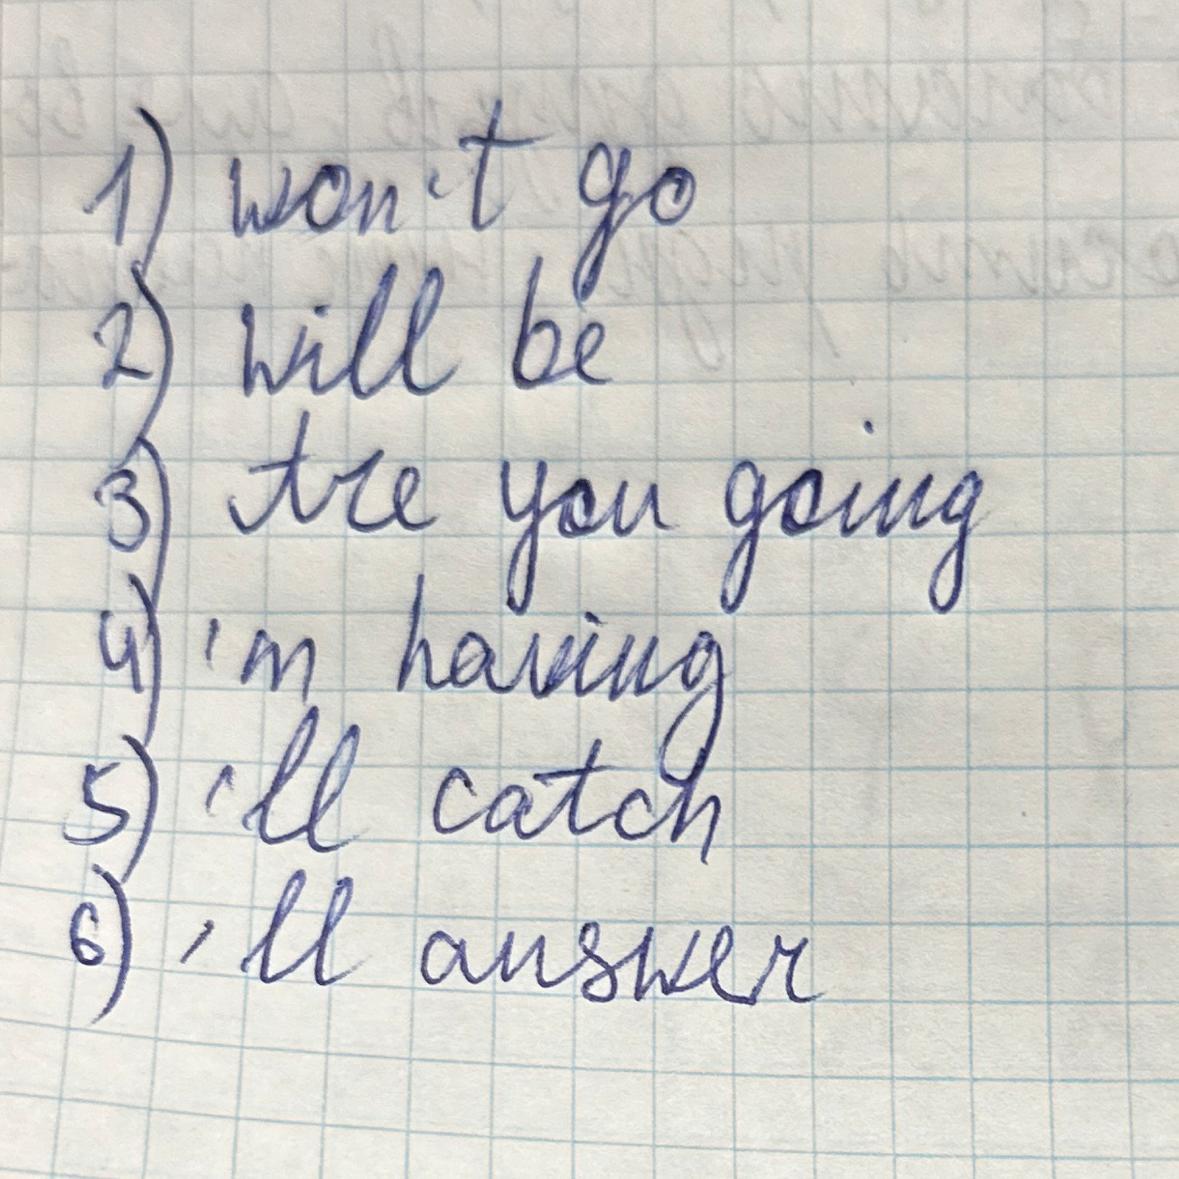 1) won't go
2) will be
3) Are you going
4) 'm having
5) 'll catch
6) 'll answer